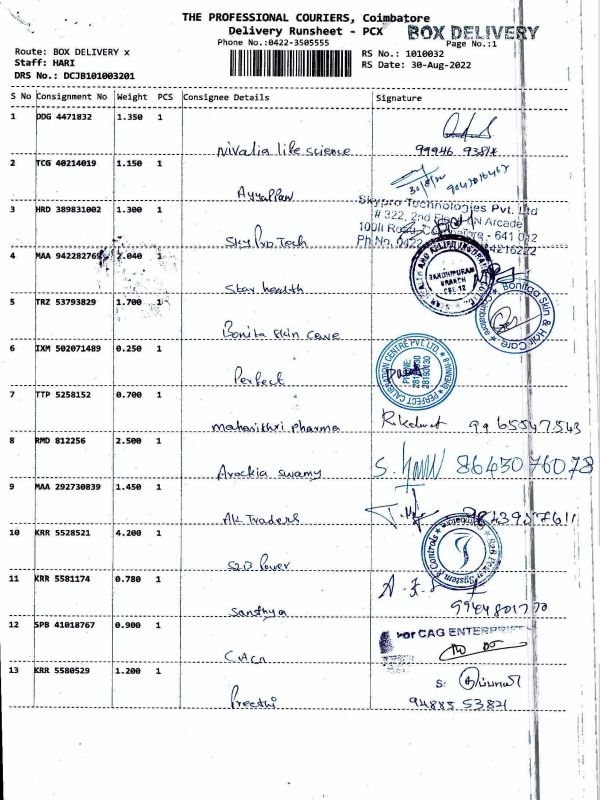 THE PROFESSIONAL COURIERS, Coimbatore
Delivery Runsheet - PCX
BOX DELIVERY
Phone No.:0422-3505555
Page No.:1
Route: BOX DELIVERY x
RS No.: 1010032
Staff: HARI
RS Date: 30-Aug-2022
DRS No.: DCJB101003201
S No Consignment No Weight PCS Consignee Details Signature
1 DDG 4471832 1.350 1
Nivalia life science 99946
2 TCG 40214019 1.150 1
Ayyappan
3 HRD 389831002 1.300 1
Skypro Technologies Pvt. Ltd
# 322, 2nd Arcade
Sky Pro Tech
Ph No. 0422 4216222
4 MAA 942282769 2.040 1
GANDHIPURAM
BRANCH
CBE-12
Star health
5 TRZ 53793829 1.700 1
Bonitaa Skin & Hair Care
Bonita Skin Care
6 IXM 502071489 0.250 1
PERFECT CALIBRATION CENTRE PVT. LTD.
PHONE:
Perfect
7 TTP 5258152 0.700 1
mahanithri pharma 9965547543
8 RMD 812256 2.500 1
Arockia swamy 8643076078
9 MAA 292730839 1.450 1
AK Traders
10 KRR 5528521 4.200 1
S2B Power System & Controls
Coimbatore
S2B Power
11 KRR 5581174 0.780 1
Santhya 9944801770
12 SPB 41018767 0.900 1
For CAG ENTERPRISES
CACA
13 KRR 5580529 1.200 1
Preethi 94885 53821